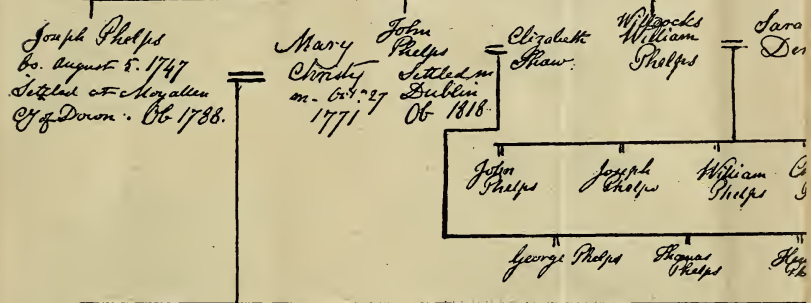 Joseph Phelps
bo. August 5. 1747
Settled at Moyallen
Cy of Down. Ob 1788.
Mary
Christy
m. Oct. 27
1771
John
Phelps
Settled in
Dublin
Ob 1818
Elizabeth
Shaw.
Willcocks
William
Phelps
Sara
De
John
Phelps
Joseph
Phelps
William
Phelps
George Phelps
Thomas
Phelps